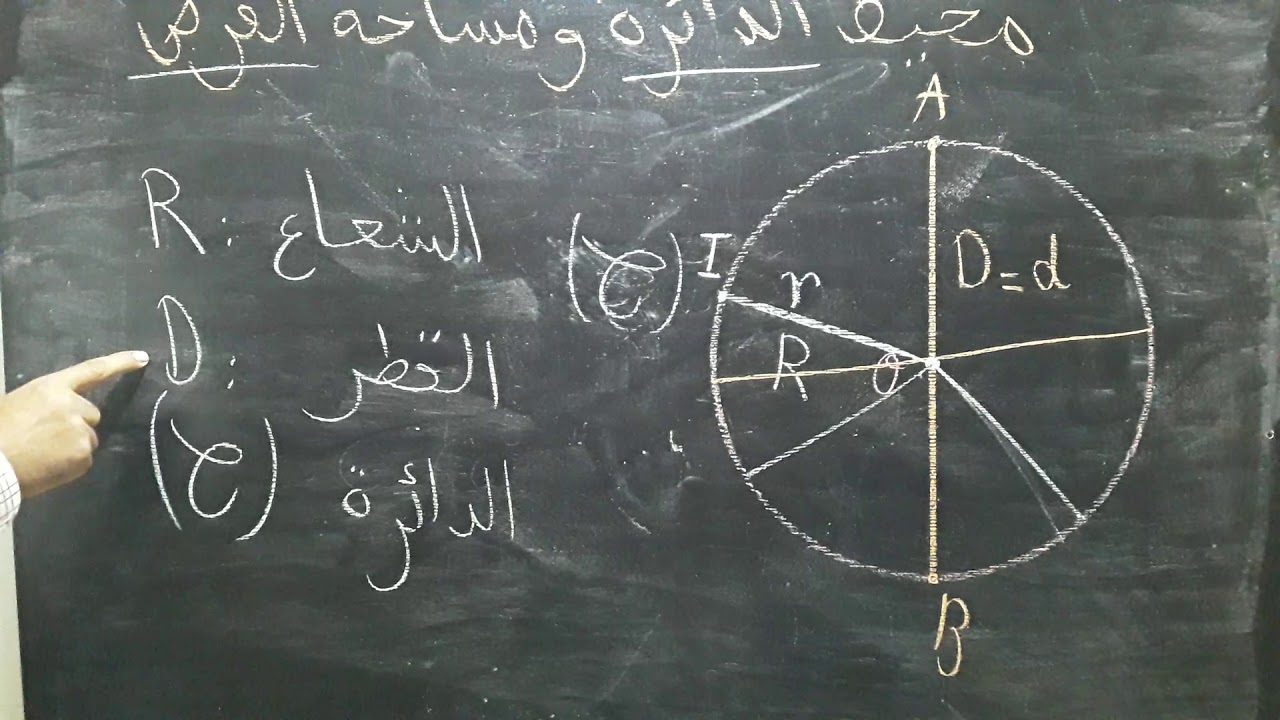 محيط الدائرة ومساحة القرص
R : الشعاع
D : القطر
(ح) الدائرة
A
D = d
(ح)
I
r
R
O
B